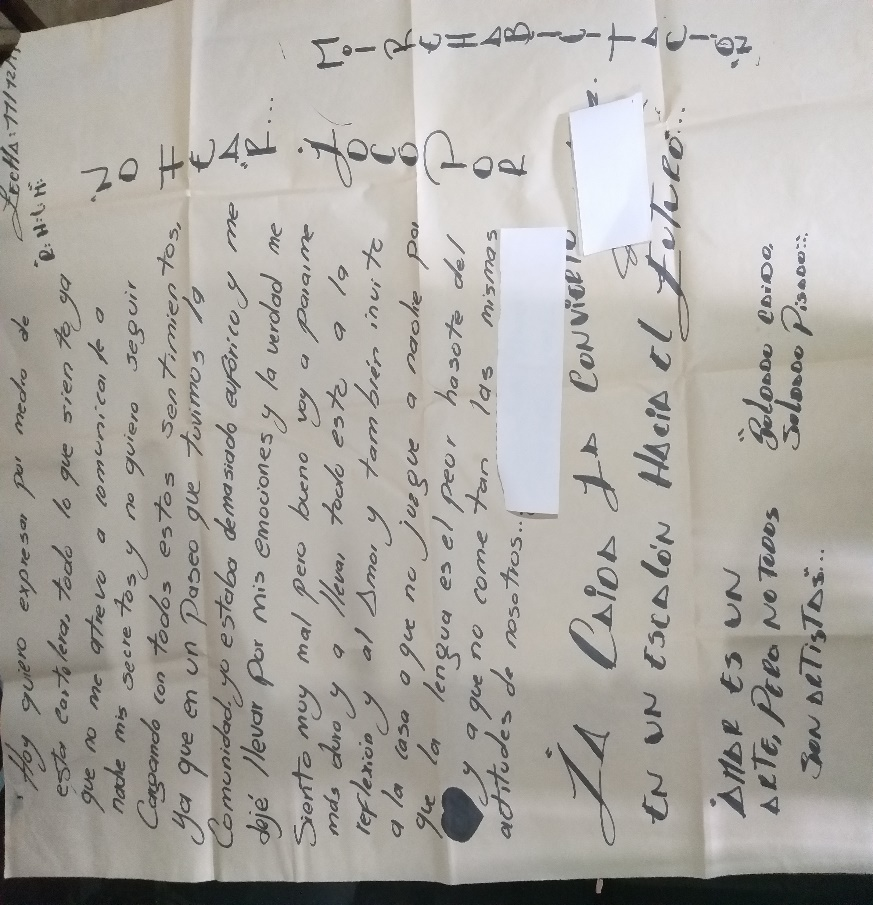 FECHA: 11/12/11
"R: H: U: H:
"Hoy quiero expresar por medio de
esta cartelera, todo lo que siento ya
que no me atrevo a comunicarle a
nadie mis secretos y no quiero seguir
Cargando con todos estos sentimientos,
ya que en un Paseo que tuvimos la
Comunidad, yo estaba demasiado eufórico y me
dejé llevar por mis emociones y la verdad me
Siento muy mal pero bueno voy a pararme
más duro y a llevar todo esto a la
reflexión y al Amor y también invito
a la casa a que no juegue a nadie por
que la lengua es el peor hasote del
y a que no come tan las mismas
actitudes de nosotros...
"NO TEAR....
"LOCO POR
MI REHABILITACIÓN"
"LA CAIDA LA CONVIERTO
EN UN ESCALÓN HACIA EL FUTURO"...
"AMAR ES UN
ARTE, PERO NO TODOS
SON ARTISTAS"...
"SOLDADO CAIDO,
SOLDADO PISADO"...